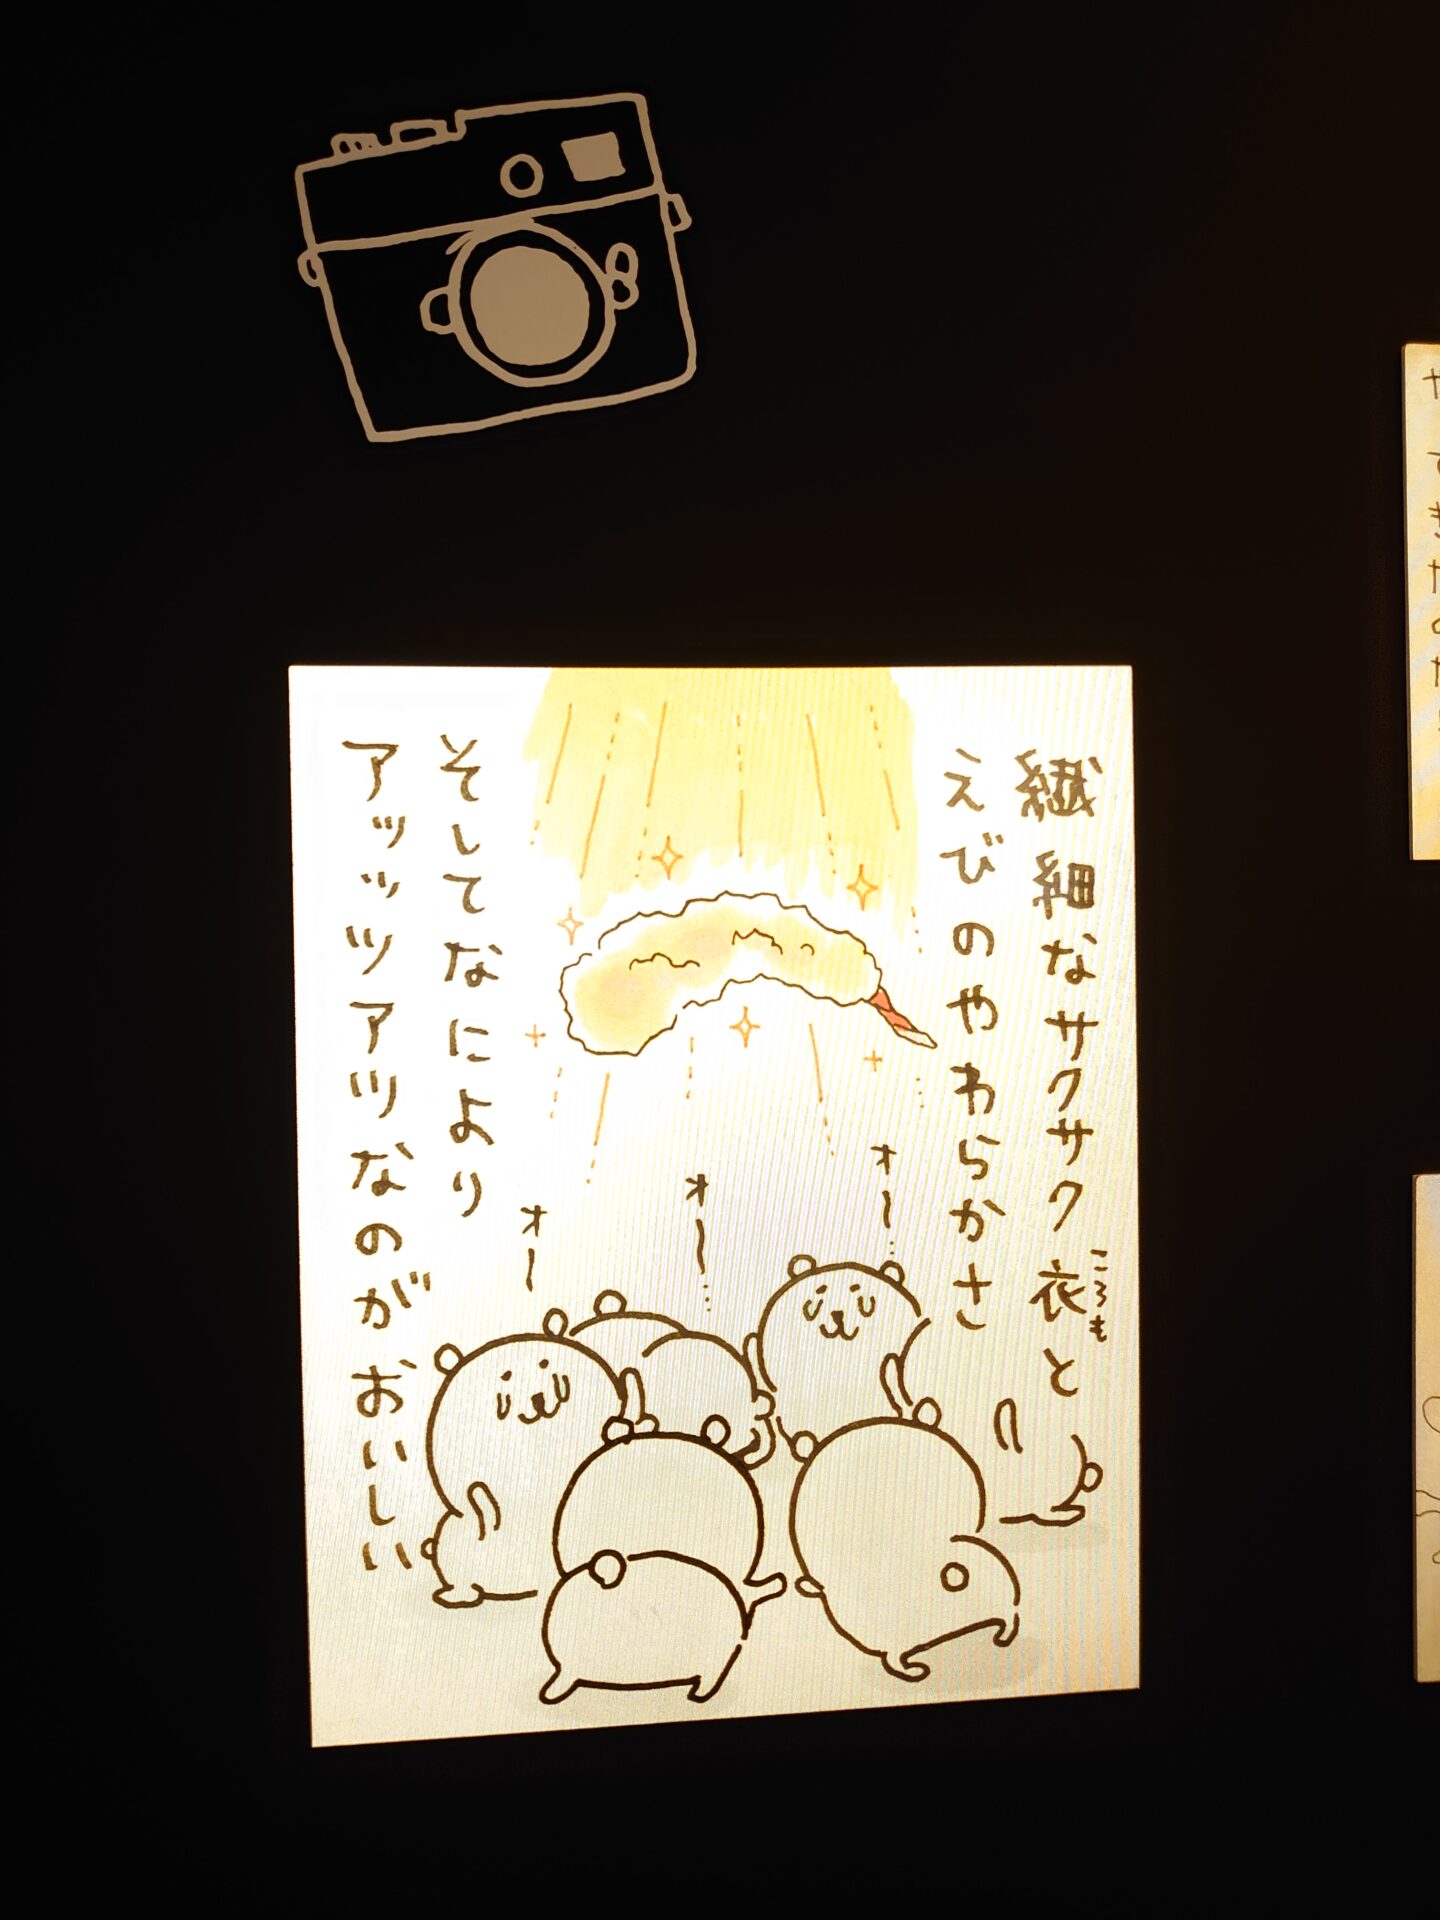 繊細なサクサク衣と
ころも
えびのやわらかさ
そしてなにより
アッッッツアツなのがおいしい
オー…
オー…
オー